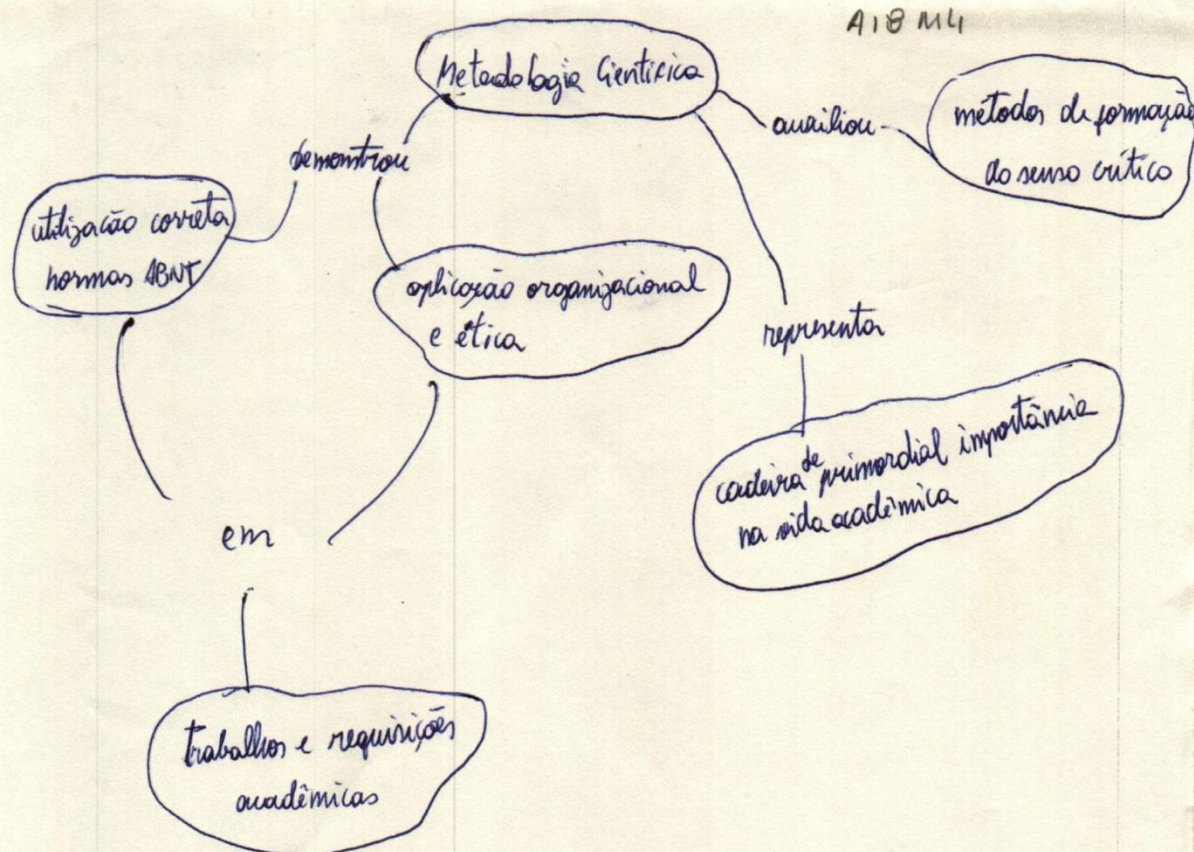 A18 M4
Metodologia Científica
auxiliou
métodos de formação
do senso crítico
demonstrou
utilização correta
normas ABNT
aplicação organizacional
e ética
representa
cadeira de primordial importância
na vida acadêmica
em
trabalhos e requisições
acadêmicas